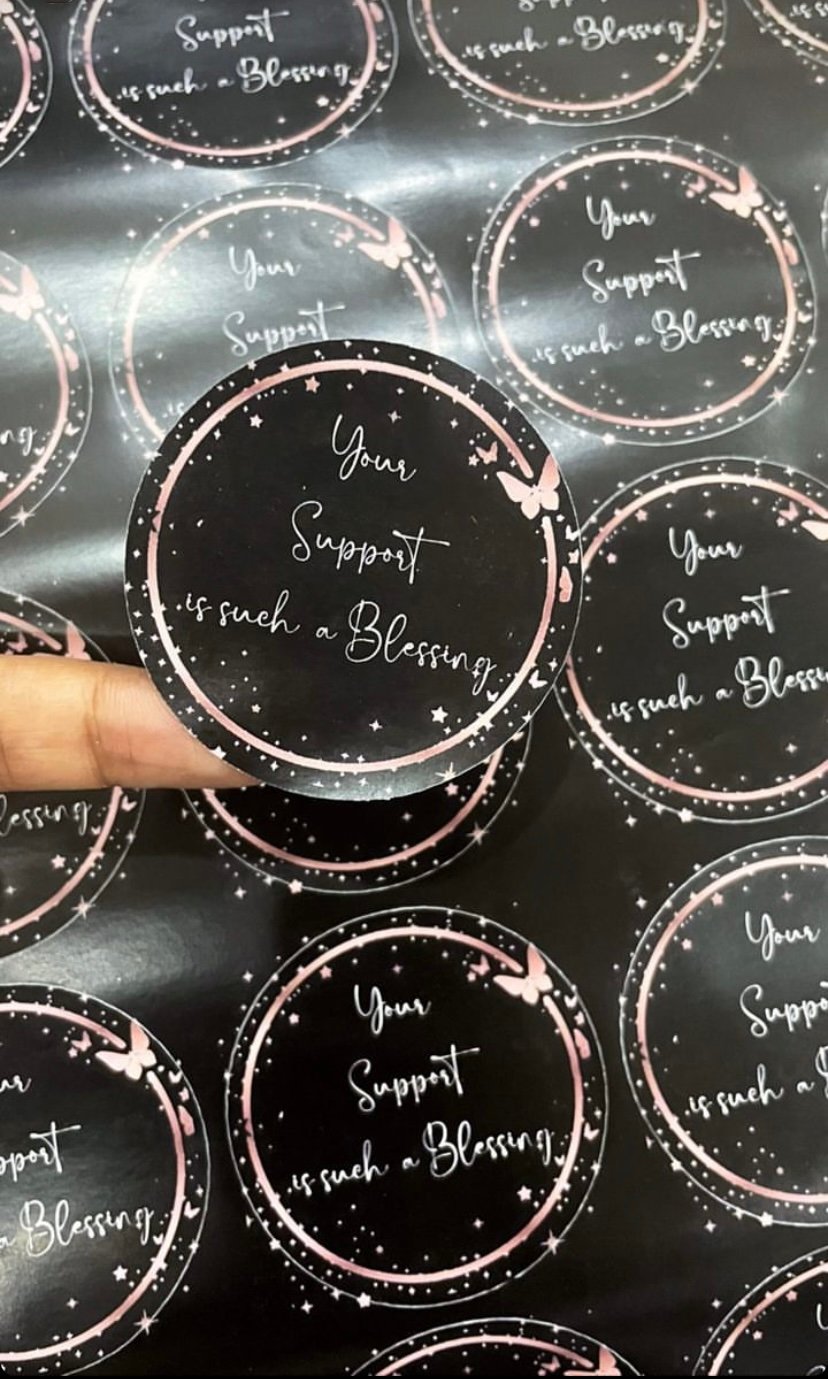 Support
is such a Blessing
is such a Blessing
Your
Support
Your
Support
is such a Blessing
Your
Support
is such a Blessing
Your
Support
is such a
Your
Support
is such a Blessing
Your
is such a
a Blessing